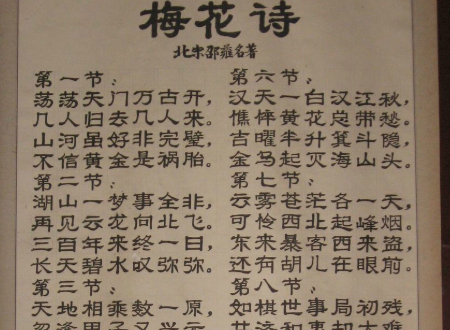 梅花诗
北宋邵雍名著
第一节:
荡荡天门万古开,
几人归去几人来。
山河虽好非完璧,
不信黄金是祸胎。
第二节:
湖山一梦事全非,
再见云龙向北飞。
三百年来终一日,
长天碧水叹弥弥。
第三节:
天地相乘数一原
第六节:
汉天一白汉江秋,
憔悴黄花总带愁。
吉曜半升箕斗隐,
金乌起灭海山头。
第七节:
云雾苍茫各一天,
可怜西北起烽烟。
东来暴客西来盗,
还有胡儿在眼前。
第八节:
如棋世事局初残,